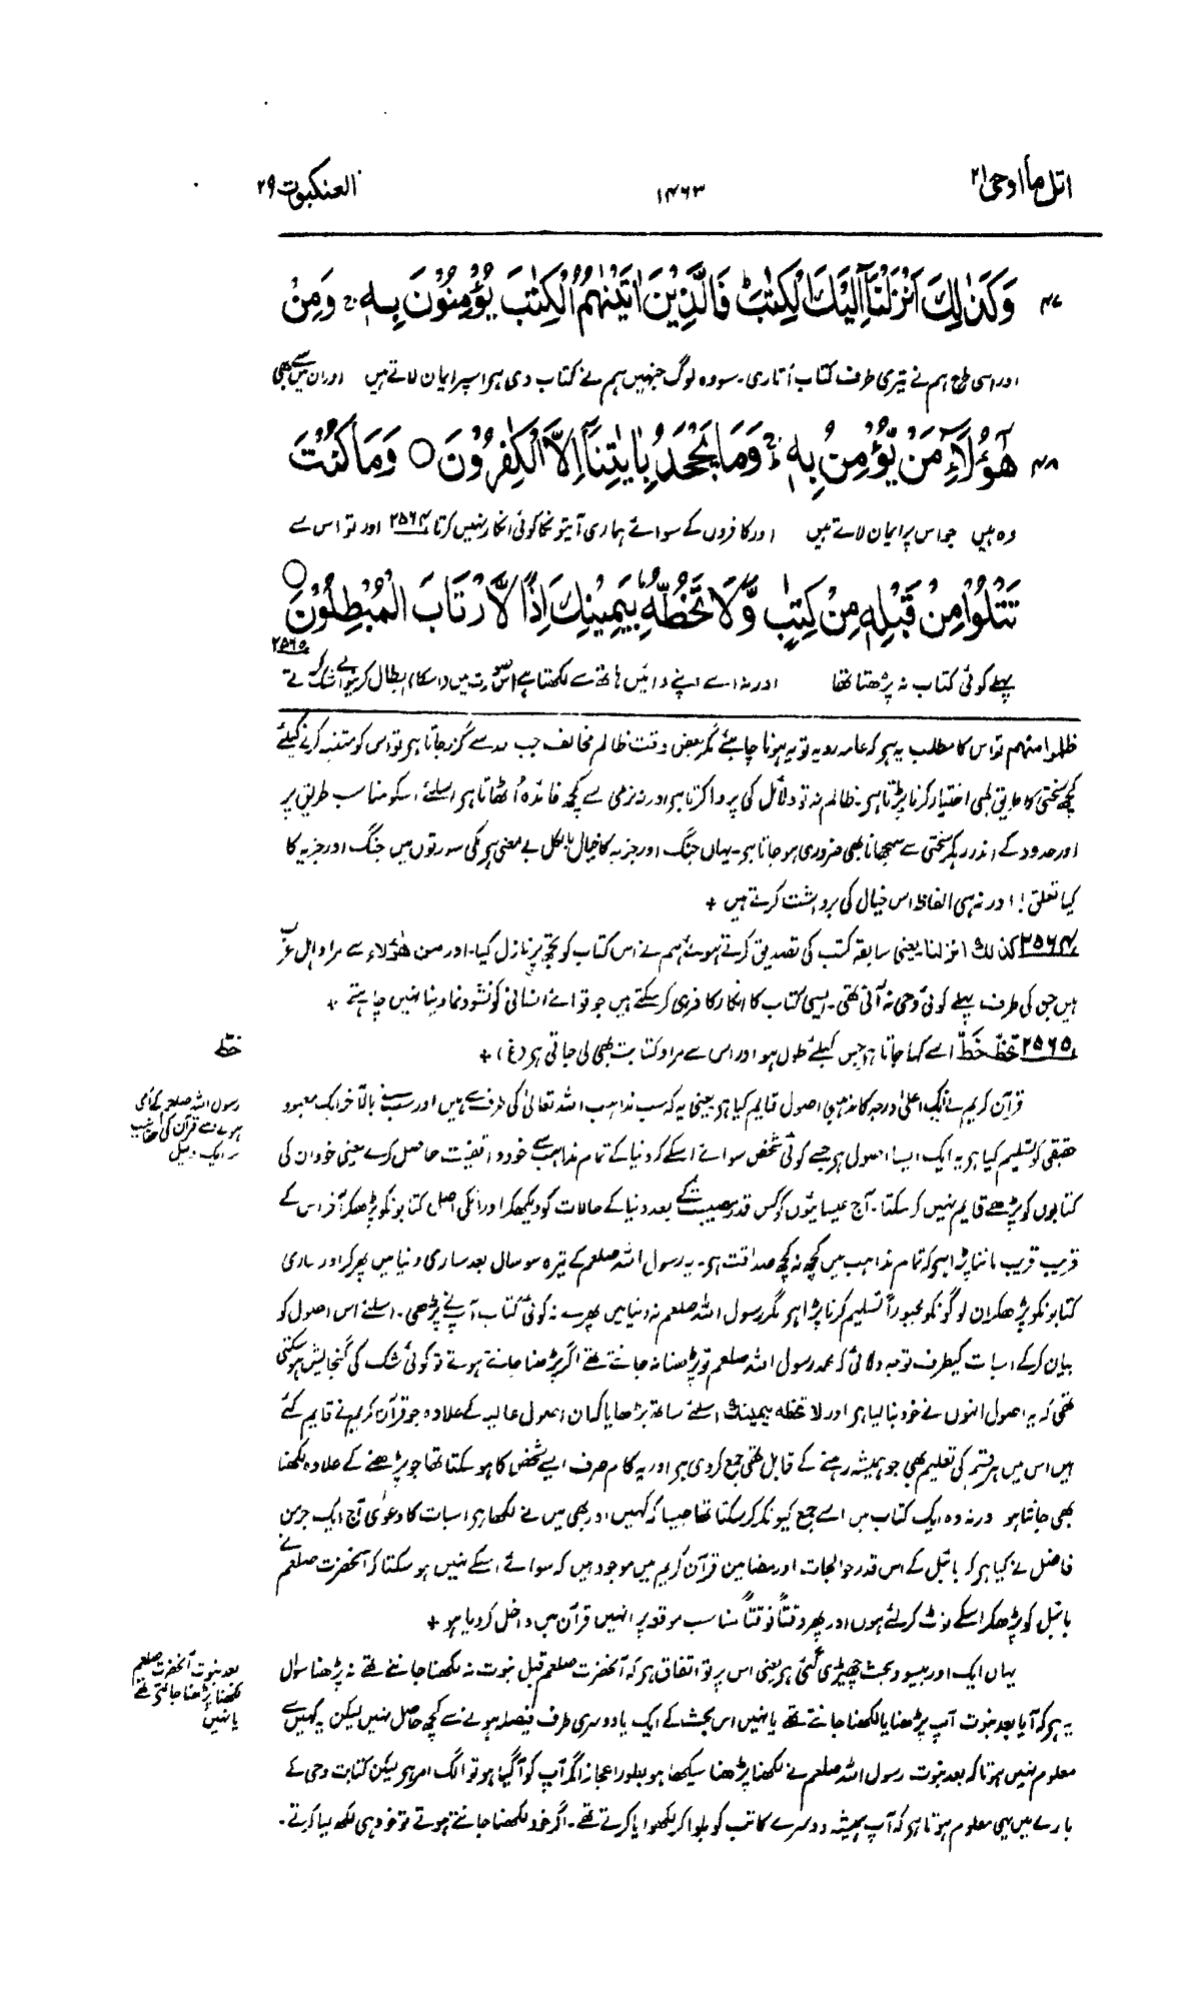 اتل ما اوحی ۲۱
۱۴۶۳
العنکبوت ۲۹
۴۷ وَكَذٰلِكَ اَنْزَلْنَآ اِلَيْكَ الْكِتٰبَ ؕ فَالَّذِيْنَ اٰتَيْنٰهُمُ الْكِتٰبَ يُؤْمِنُوْنَ بِهٖ ۚ وَمِنْ
اور اسی طرح ہم نے تیری طرف کتاب اُتاری۔ سو وہ لوگ جنہیں ہم نے کتاب دی ہر اسپر ایمان لاتے ہیں اور ان میں سے بھی
۴۸ هٰٓؤُلَآءِ مَنْ يُّؤْمِنُ بِهٖ ؕ وَمَا يَجْحَدُ بِاٰيٰتِنَآ اِلَّا الْكٰفِرُوْنَ ○ وَمَا كُنْتَ
وہ ہیں جو اس پر ایمان لاتے ہیں اور کافروں کے سوائے ہماری آیتونکا کوئی انکار نہیں کرتا ۲۵۶۴ اور تو اس سے
تَتْلُوْا مِنْ قَبْلِهٖ مِنْ كِتٰبٍ وَّلَا تَخُطُّهٗ بِيَمِيْنِكَ اِذًا لَّارْتَابَ الْمُبْطِلُوْنَ ○
۲۵۶۵
پہلے کوئی کتاب نہ پڑھتا تھا اور نہ اسے اپنے دائیں ہاتھ سے لکھتا ہے اس صورت میں (اسکا) ابطال کرنیوالے شک کرتے
ظلموا منہم تو اس کا مطلب یہ ہر کہ عام رویہ تو یہ ہونا چاہیئے مگر بعض وقت ظالم مخالف جب حد سے گزر جاتا ہر تو اس کو متنبہ کرنے کیلئے
کچھ سختی کا طریق بھی اختیار کرنا پڑتا ہر۔ ظالم نہ تو دلائل کی پروا کرتا ہر اور نہ نرمی سے کچھ فائدہ اُٹھاتا ہر اسلئے اسکو مناسب طریق پر
اور حدود کے اندر رہکر سختی سے سمجھانا بھی ضروری ہو جاتا ہر۔ یہاں جنگ اور جزیہ کا خیال بالکل بے معنی ہر مکی سورتوں میں جنگ اور جزیہ کا
کیا تعلق! اور نہ ہی الفاظ اس خیال کی برداشت کرتے ہیں +
۲۵۶۴ کذٰلک انزلنا یعنی سابقہ کتب کی تصدیق کرتے ہوئے ہم نے اس کتاب کو تجھ پر نازل کیا۔ اور من ھٰؤلاء سے مراد اہل عرب
ہیں جن کی طرف پہلے کوئی وحی نہ آئی تھی۔ ایسی کتاب کا انکار کافر ہی کر سکتے ہیں جو قوائے انسانی کو نشو و نما دینا نہیں چاہتے +
۲۵۶۵ تخطّ خَطّ اسے کہا جاتا ہر جس کیلئے طول ہو اور اس سے مراد کتابت بھی لی جاتی ہر (غ) +
خطّ
قرآن کریم نے ایک اعلیٰ درجہ کا مذہبی اصول قایم کیا ہر یعنی یہ کہ سب مذاہب اللہ تعالیٰ کی طرف سے ہیں اور سب نے بالآخر ایک معبود
رسول اللہ صلعم کے اُمی
ہونے سے قرآن کی صداقت
پر ایک دلیل
حقیقی کو تسلیم کیا ہر یہ ایک ایسا اصول ہر جسے کوئی شخص سوائے اسکے کہ دنیا کے تمام مذاہب سے خود واقفیت حاصل کرے یعنی خود ان کی
کتابوں کو پڑھے قایم نہیں کر سکتا۔ آج عیسائیوں کو کس قدر مصیبت کے بعد دنیا کے حالات کو دیکھکر اور انکی اصل کتابونکو پڑھکر آخر اس کے
قریب قریب ماننا پڑا ہر کہ تمام مذاہب میں کچھ نہ کچھ صداقت ہر۔ یہ رسول اللہ صلعم کے تیرہ سو سال بعد ساری دنیا میں پھر کر اور ساری
کتابونکو پڑھکر ان لوگونکو مجبوراً تسلیم کرنا پڑا ہر مگر رسول اللہ صلعم نہ دنیا میں پھرے نہ کوئی کتاب آپنے پڑھی۔ اسلئے اس اصول کو
بیان کرکے اسبات کیطرف توجہ دلائی کہ محمد رسول اللہ صلعم تو پڑھنا نہ جانتے تھے اگر پڑھنا جانتے ہوتے تو کوئی شک کی گنجایش ہو سکتی
تھی کہ یہ اصول انہوں نے خود بنا لیا ہر اور لا تخطہ بیمینک اسلئے ساتھ بڑھایا کہ ان اصول عالیہ کے علاوہ جو قرآن کریم نے قایم کئے
ہیں اس میں ہر قسم کی تعلیم بھی جو ہمیشہ رہنے کے قابل تھی جمع کر دی ہر اور یہ کام صرف ایسے شخص کا ہو سکتا تھا جو پڑھنے کے علاوہ لکھنا
بھی جانتا ہو ورنہ وہ ایک کتاب میں اسے جمع کیونکر کر سکتا تھا جیسا کہ کہیں اور بھی میں نے لکھا ہر اسبات کا دعویٰ آج ایک جرمن
فاضل نے کیا ہر کہ بائبل کے اس قدر حوالجات اور مضامین قرآن کریم میں موجود ہیں کہ سوائے اسکے نہیں ہو سکتا کہ آنحضرت صلعم نے
بائبل کو پڑھکر اسکے نوٹ کر لئے ہوں اور پھر وقتاً فوقتاً مناسب موقعہ پر انہیں قرآن میں داخل کر دیا ہو +
یہاں ایک اور بیسود بحث چھیڑی گئی ہر یعنی اس پر تو اتفاق ہر کہ آنحضرت صلعم قبل نبوت نہ لکھنا جانتے تھے نہ پڑھنا سوال
بعد نبوت آنحضرت صلعم
لکھنا پڑھنا جانتے تھے
یا نہیں
یہ ہر کہ آیا بعد نبوت آپ پڑھنا یا لکھنا جانتے تھے یا نہیں اس بحث کے ایک یا دوسری طرف فیصلہ ہونے سے کچھ حاصل نہیں لیکن یہ کہیں سے
معلوم نہیں ہوتا کہ بعد نبوت رسول اللہ صلعم نے لکھنا پڑھنا سیکھا ہو بطور اعجاز اگر آپ کو آگیا ہو تو الگ امر ہر لیکن کتابت وحی کے
بارے میں یہی معلوم ہوتا ہر کہ آپ ہمیشہ دوسرے کاتب کو بلوا کر لکھوایا کرتے تھے۔ اگر خود لکھنا جانتے ہوتے تو خود ہی لکھ لیا کرتے۔